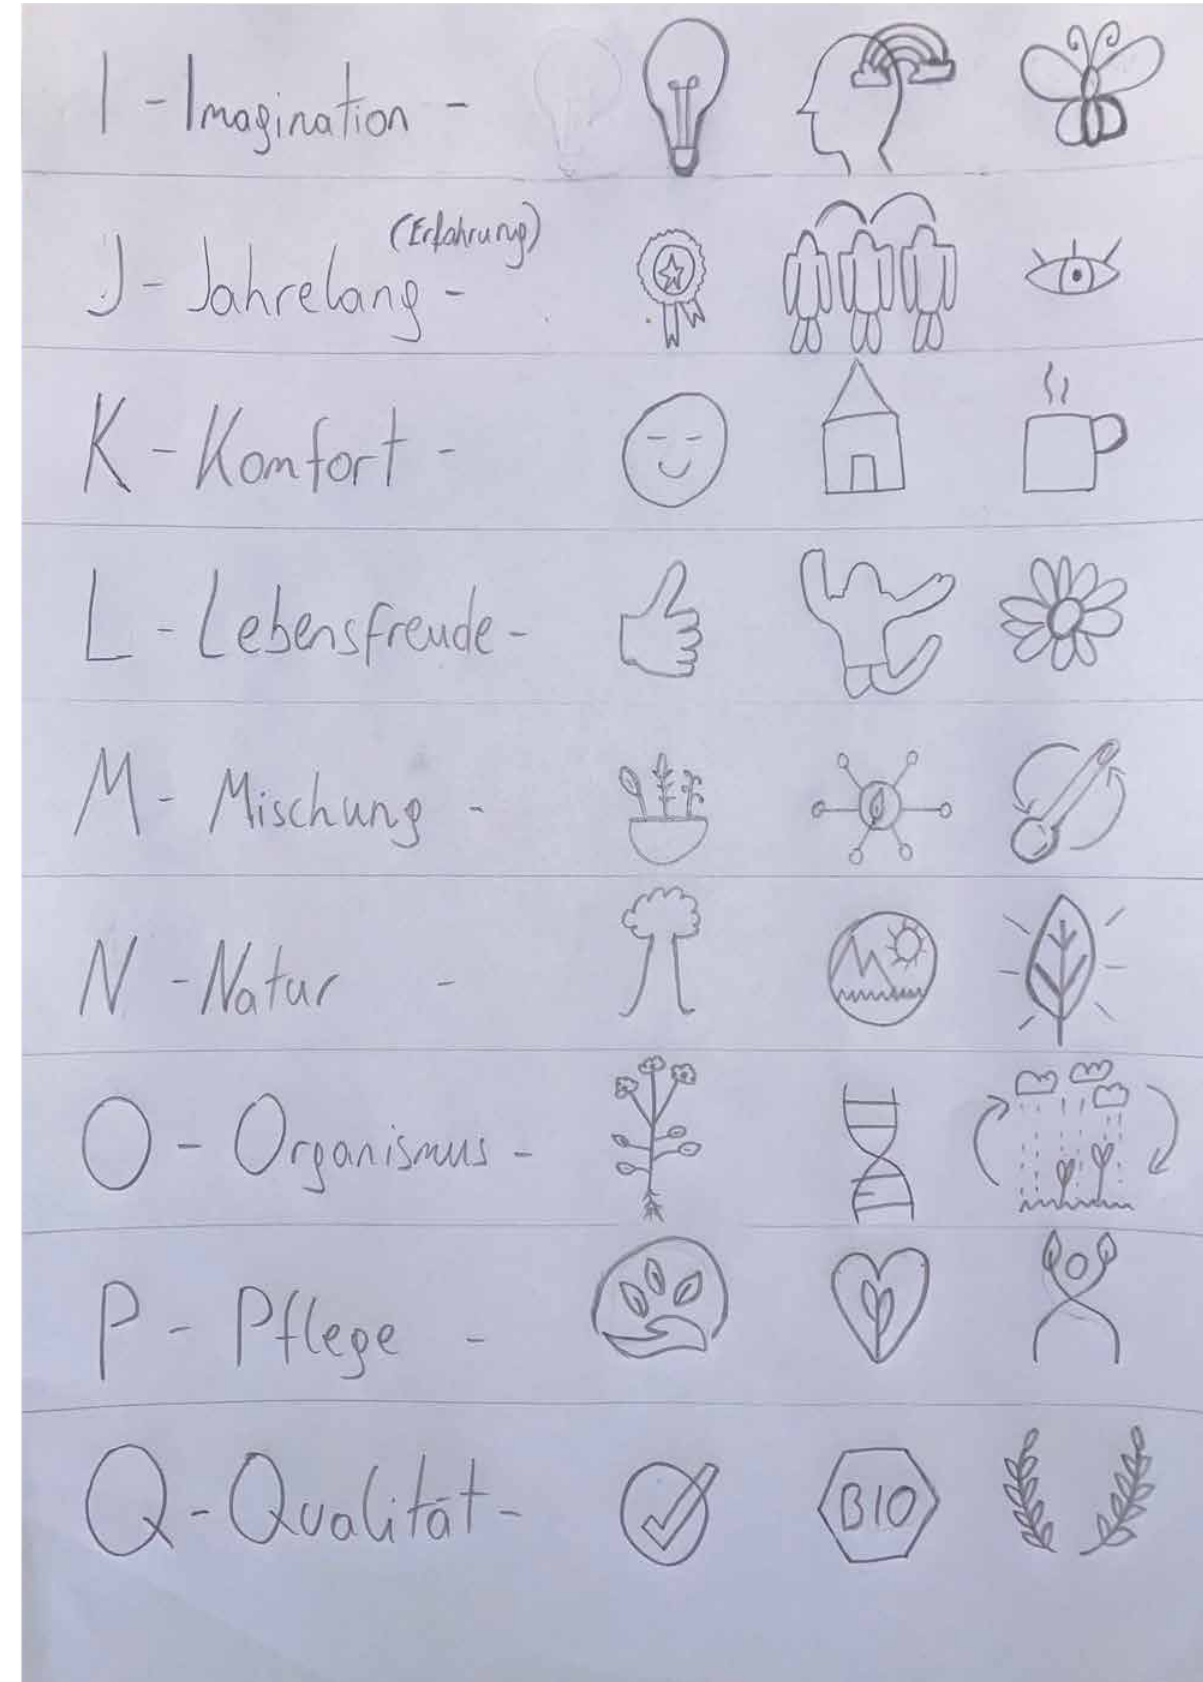 I - Imagination -
(Erfahrung)
J - Jahrelang -
K - Komfort -
L - Lebensfreude -
M - Mischung -
N - Natur -
O - Organismus -
P - Pflege -
Q - Qualität -
BIO